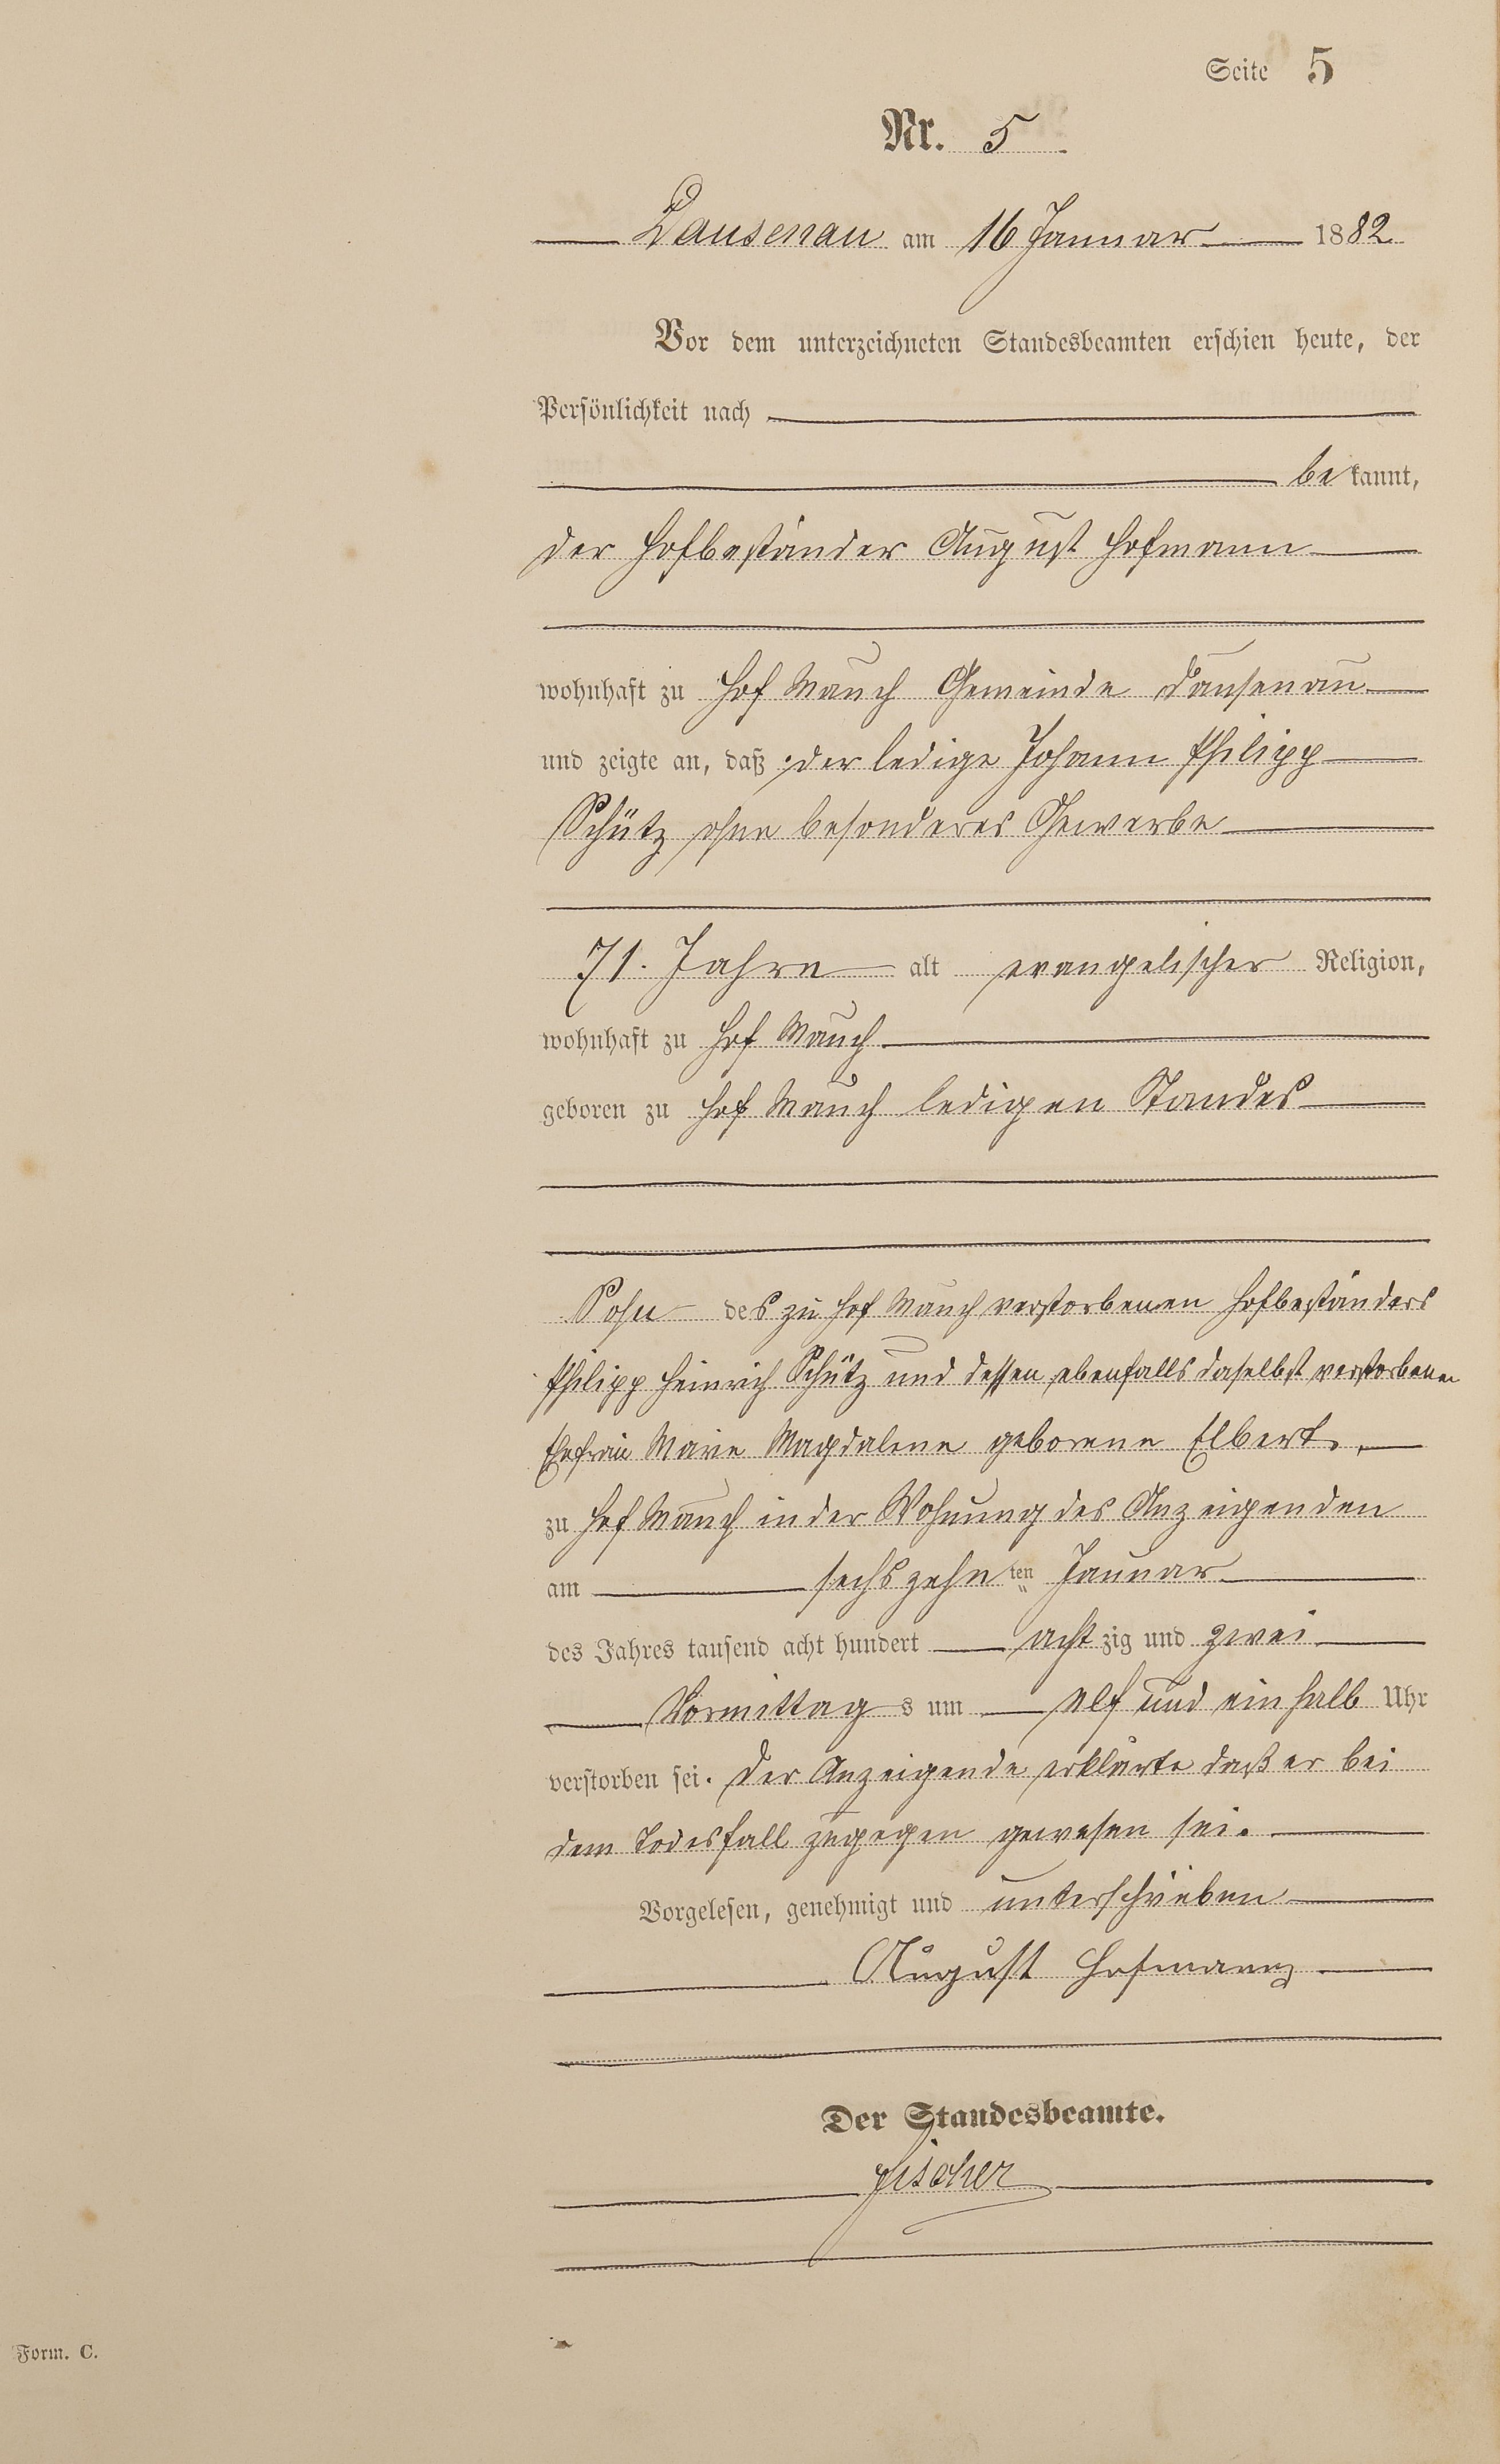 Seite 5
Nr. 5
Dausenau am 16 Januar 1882
Vor dem unterzeichneten Standesbeamten erschien heute, der
Persönlichkeit nach
bekannt,
der Hofbeständer August Hofmann
wohnhaft zu Hof Mauch Gemeinde Dausenau
und zeigte an, daß der ledige Johann Philipp
Schütz ohne besonderes Gewerbe
71. Jahre alt evangelischer Religion,
wohnhaft zu Hof Mauch
geboren zu Hof Mauch ledigen Standes
Sohn des zu Hof Mauch verstorbenen Hofbeständers
Philipp Heinrich Schütz und dessen ebenfalls daselbst verstorbenen
Ehefrau Marie Magdalene geborene Elbert,
zu Hof Mauch in der Wohnung des Anzeigenden
am sechszehnten Januar
des Jahres tausend acht hundert achtzig und zwei
Vormittags um elf und ein halb Uhr
verstorben sei. Der Anzeigende erklärte daß er bei
dem Todesfall zugegen gewesen sei.
Vorgelesen, genehmigt und unterschrieben
August Hofmann
Der Standesbeamte.
Fischer
Form. C.